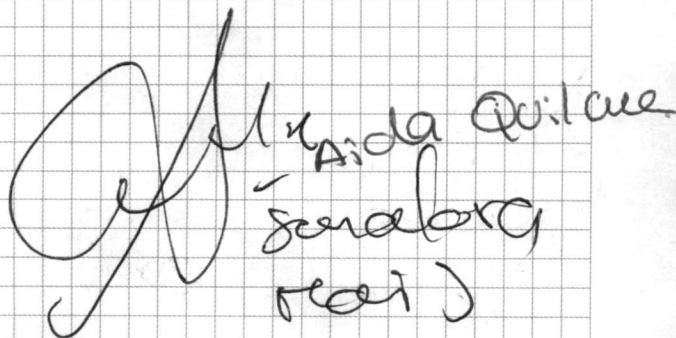 Aida Quilcue
Senadora
MAIS